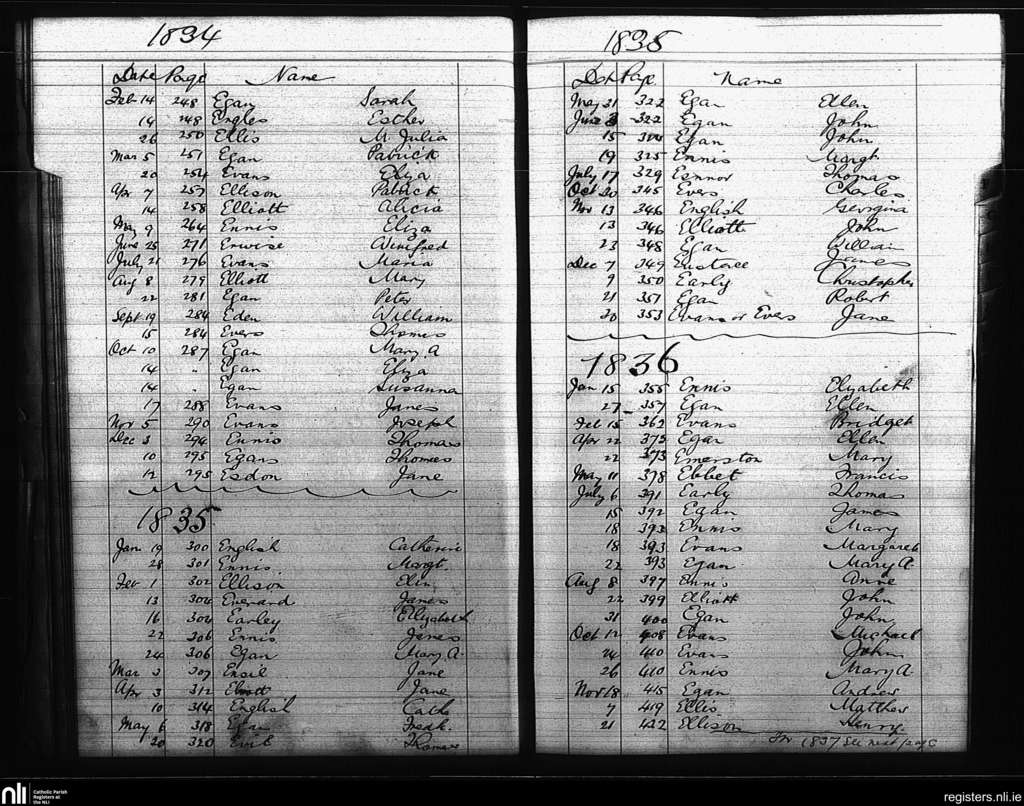 1834
Date Page Name
Feb 14 248 Egan Sarah
14 248 Engles Esther
26 250 Ellis M. Julia
Mar 5 251 Egan Patrick
20 254 Evans Eliza
Apr 7 257 Ellison Patrick
14 258 Elliott Alicia
May 9 264 Ennis Eliza
June 25 271 Erwise Winifred
July 21 276 Evans Maria
Aug 8 279 Elliott Mary
22 281 Egan Peter
Sept 19 284 Eden William
15 284 Evers Thomas
Oct 10 287 Egan Mary A
14 " Egan Eliza
14 " Egan Susanna
17 288 Evans James
Nov 5 290 Evans Joseph
Dec 3 294 Ennis Thomas
10 295 Egans Thomas
12 295 Esdon Jane
1835
Jan 19 300 English Catherine
28 301 Ennis Margt.
Feb 1 302 Ellison Elin
13 304 Everard James
16 304 Earley Elizabeth
22 306 Ennis James
24 306 Egan Mary A.
Mar 3 307 Ensil Jane
Apr 3 312 Jane
10 314 English Cath
May 6 318 Egan Fredk.
20 320 Evil Thomas
1835
Date Page Name
May 31 322 Egan Ellen
June 322 Egan John
15 324 Egan John
19 325 Ennis Margt
July 17 329 Esmnor Thomas
Oct 20 345 Evers Charles
Nov 13 346 English Georgina
13 346 Elliott John
23 348 Egan William
Dec 7 349 Eustace James
9 350 Early Christopher
21 351 Egan Robert
30 353 Evans or Evers Jane
1836
Jan 15 355 Ennis Elizabeth
27 357 Egan Ellen
Feb 15 362 Evans Bridget
Apr 22 373 Egan Ellen
22 373 Emerston Mary
May 11 378 Ebbet Francis
July 6 391 Early Thomas
15 392 Egan James
18 393 Ennis Mary
18 393 Evans Margaret
22 393 Egan Mary A.
Aug 8 397 Ennis Anne
22 399 Elliott John
31 400 Egan John
Oct 12 408 Evans Michael
14 410 Evans John
26 410 Ennis Mary A
Nov 18 415 Egan Andrew
7 419 Ellis Matthew
21 422 Ellison Henry
For 1837 see next page
nli Catholic Parish Registers at the NLI
registers.nli.ie